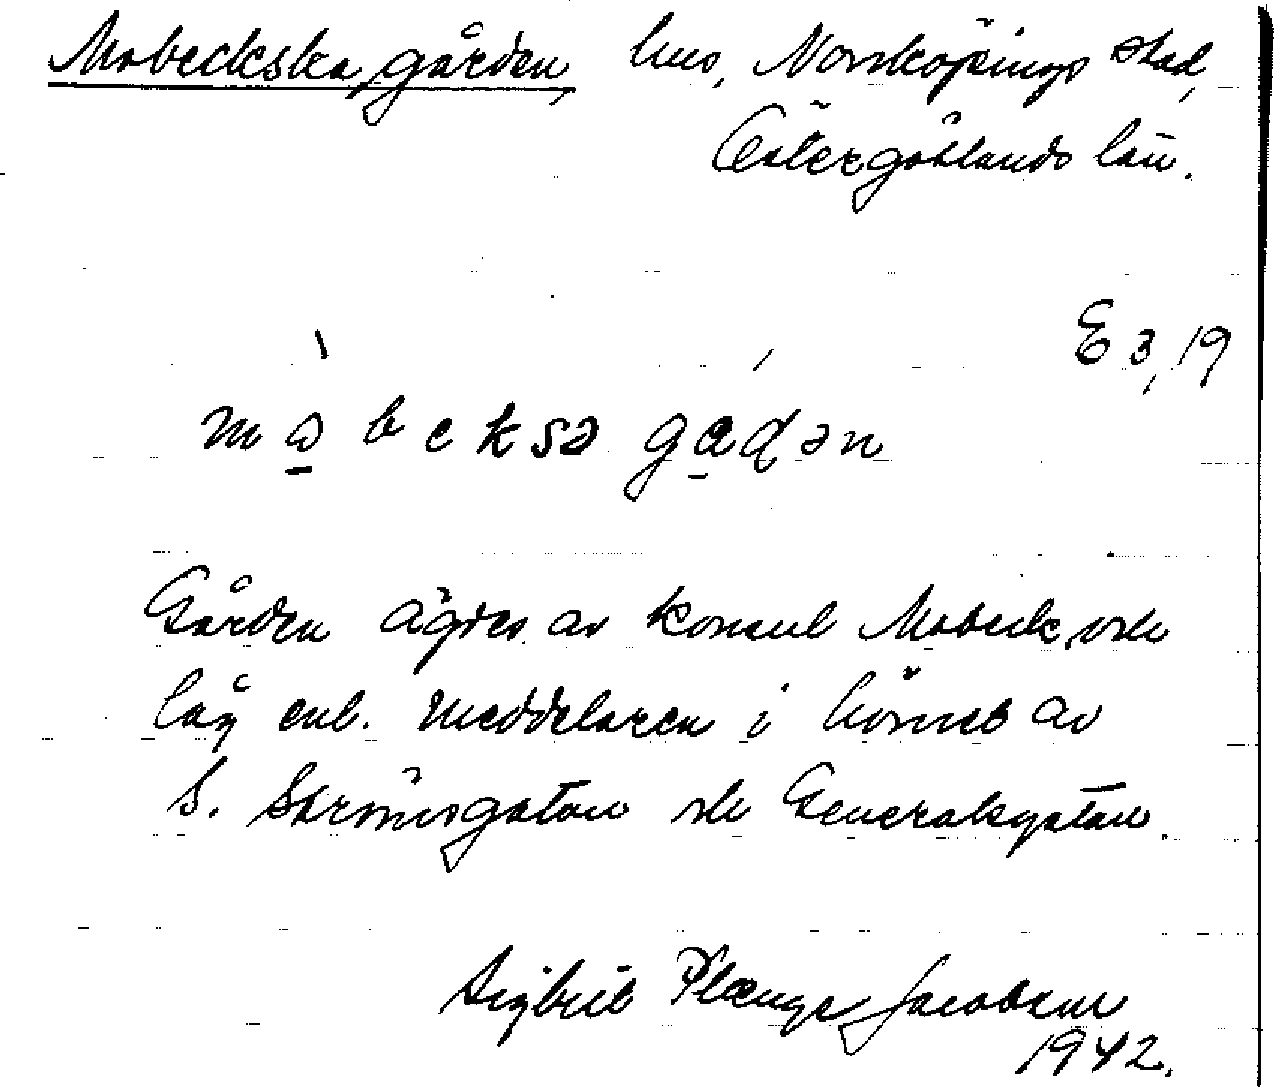 Mobeckska gården, hus, Norrköpings stad,
Östergötlands län.
E 3, 19
mo̠beksə ga̠ɖən
Gården ägdes av konsul Mobeck och
låg enl. meddelaren i hörnet av
S. Strömsgatan och Generalsgatan.
Sigbrit Plænge Jacobson
1942.